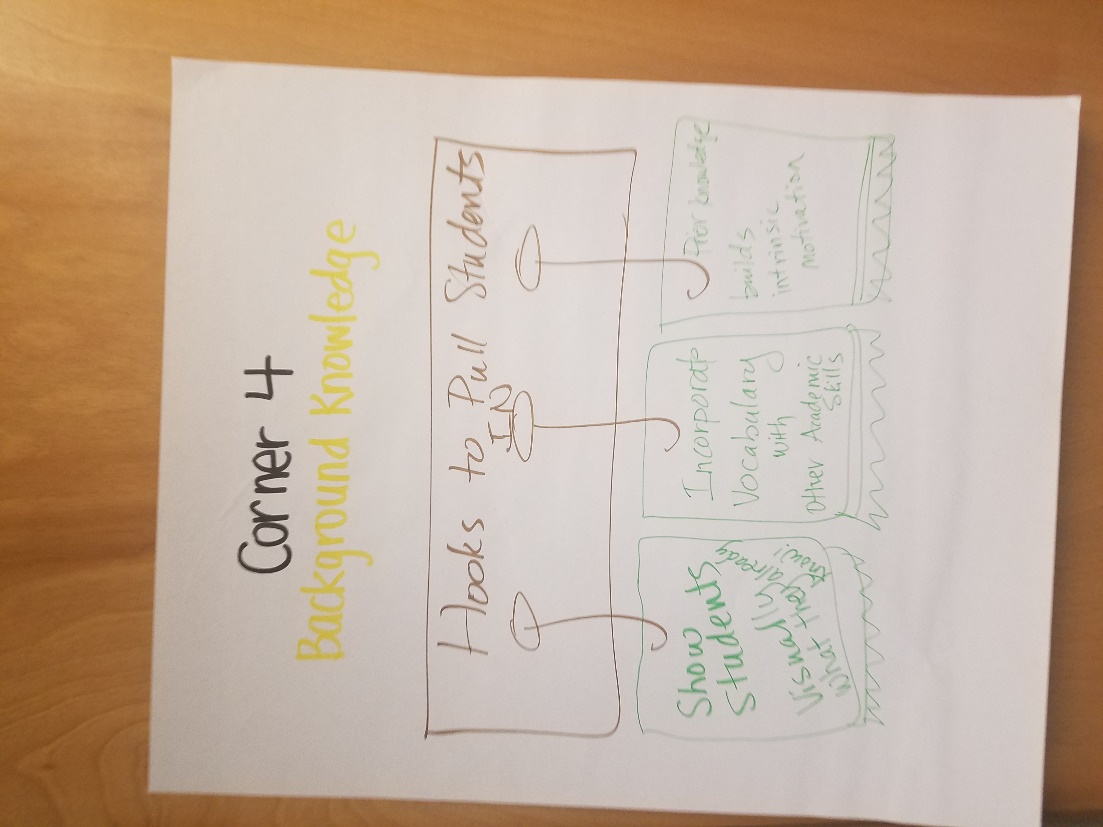 Corner 4
Background Knowledge
Hooks to Pull Students
IN
Show
Students
Visually
What they already
know!
Incorporate
Vocabulary
with
Other Academic
Skills
Prior knowledge
builds
intrinsic
motivation